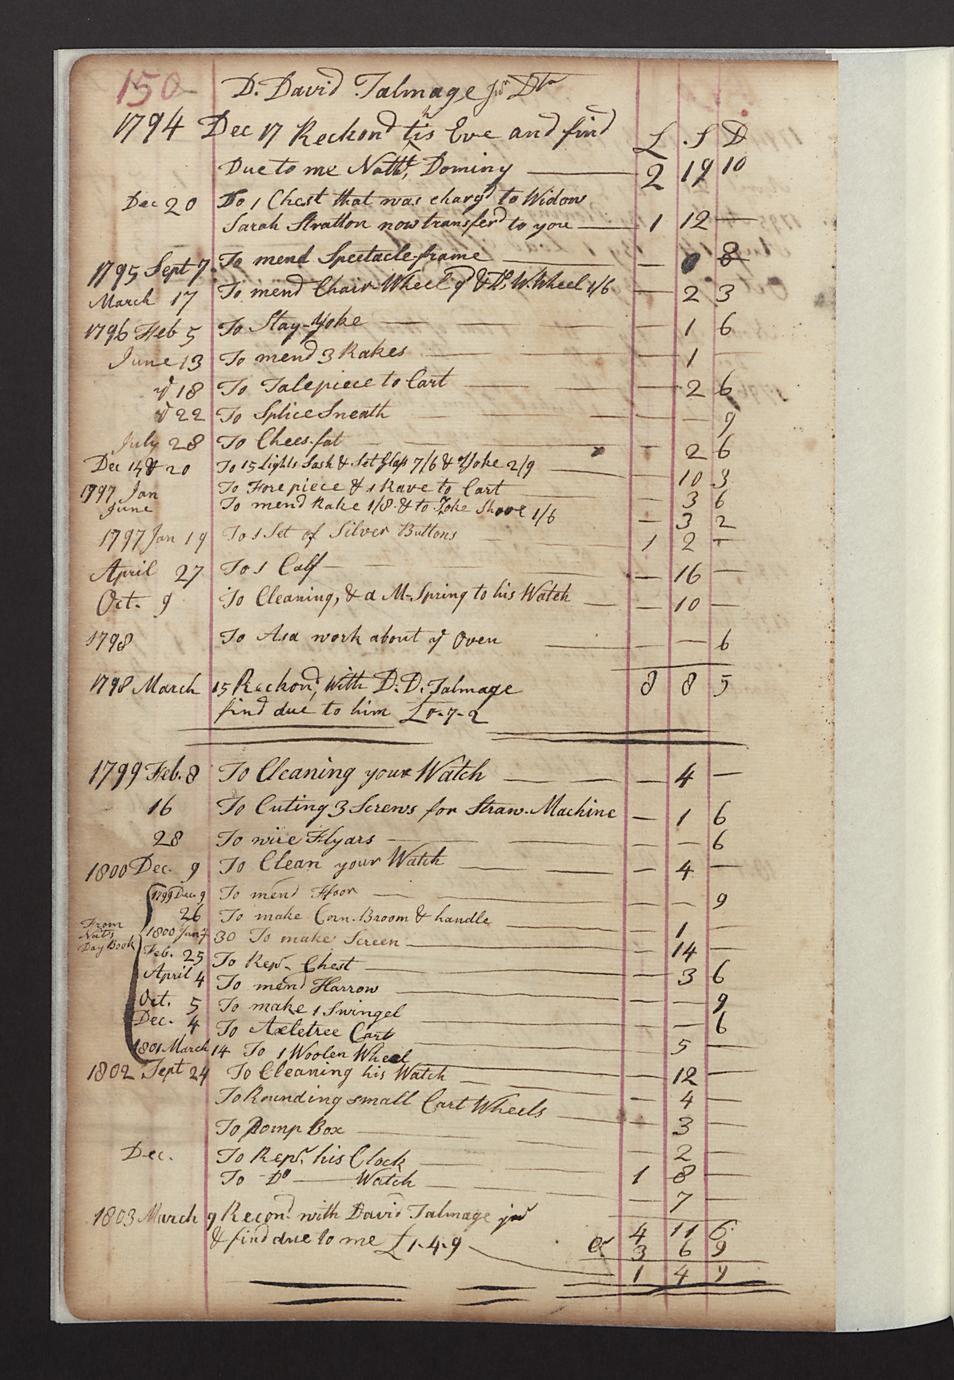 150 D. David Talmage Jur Dtr
1794 Dec 17 Reckond this Eve and find £ S D
Due to me Nathl. Dominy 2 19 10
Dec 20 To 1 Chest that was chargd to Widow
Sarah Stratton now transferd to you 1 12 —
1795 Sept 7 To mend Spectacle frame — 0 8
March 17 To mend Chair-Wheel 9d & Do. W. Wheel 1/6 — 2 3
1796 Feb 5 To Stay-Yoke — 1 6
June 13 To mend 3 Rakes — 1
d 18 To Talepiece to Cart — 2 6
d 22 To Splice Sneath — 9
July 28 To Chees-fat — 2 6
Dec 14 & 20 To 15 Lights Sash & Set Glass 7/6 & Yoke 2/9 — 10 3
1797 Jan To Forepiece & 1 Rave to Cart 3 6
June To mend Rake 1/8 & to Yoke Shove 1/6 — 3 2
1797 Jan 19 To 1 Set of Silver Buttons 1 2 —
April 27 To 1 Calf — 16 —
Oct. 9 To Cleaning, & a M-Spring to his Watch — 10 —
1798 To Asa work about ye Oven — — 6
1798 March 15 Reckond, with D. D. Talmage 8 8 5
find due to him £0-7-2
1799 Feb. 8 To Cleaning your Watch — 4 —
16 To Cuting 3 Screws for Straw-Machine — 1 6
28 To wire Flyars — — 6
1800 Dec. 9 To Clean your Watch — 4 —
1799 Dec 9 To mend Floor — — 9
26 To make Corn-Broom & handle — 1 —
From Nat's Day Book
1800 Jan 30 To make Screen — 14 —
Feb. 25 To Repr. Chest — 3 6
April 4 To mend Harrow — — 9
Oct. 5 To make 1 Swingel — — 6
Dec. 4 To Axletree Cart 5 —
1801 March 14 To 1 Woolen Wheel — 12 —
1802 Sept 24 To Cleaning his Watch — 4 —
To Rounding small Cart Wheels — 3 —
To Pomp Box — 2 —
Dec. To Repr. his Clock 1 8 —
To Do — Watch — 7 —
1803 March 9 Recond. with David Talmage jur 4 11 6
& find due to me £1-4-9 Cr 3 6 9
1 4 9